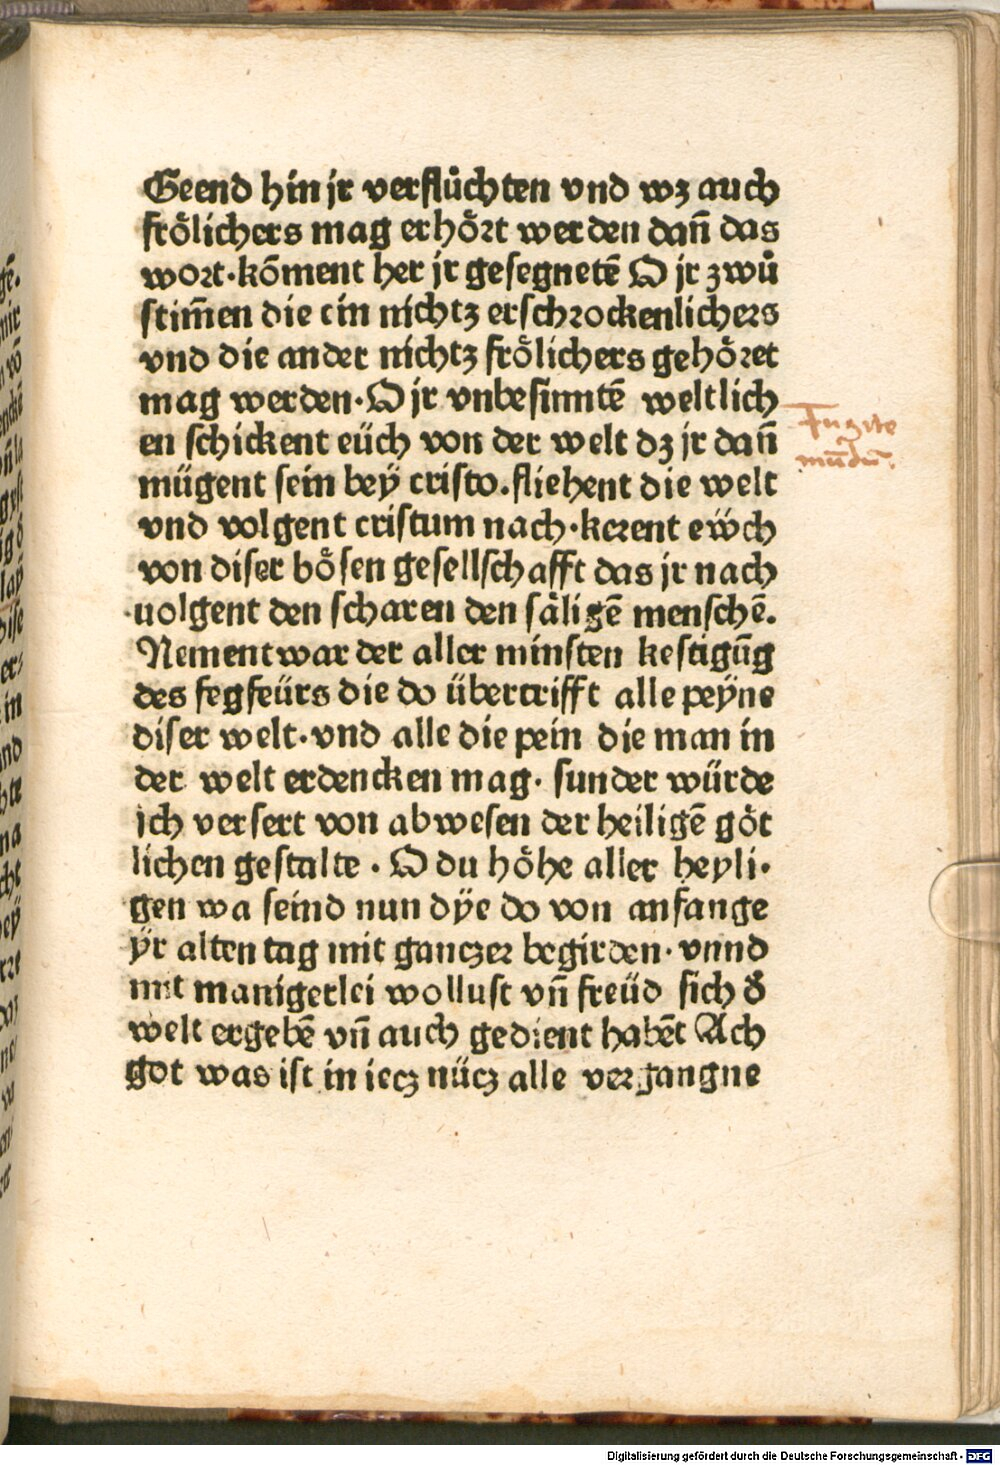 Geend hin jr verflůchten vnd wz auch
frőlichers mag erhőrt werden dañ das
wort·kōment her jr gesegnetē O jr zwů
stim̄en die ein nichtz erschrockenlichers
vnd die ander nichtz frőlichers gehőret
mag werden·O jr vnbesinntē weltlich
en schickent eüch von der welt dz jr dañ
mügent sein bey̎ cristo.fliehent die welt
vnd volgent cristum nach·kerent ew̎ch
von diser bősen gesellschafft das jr nach
uolgent den scharen den säligē menschē.
Nement war der aller minsten kestigūg
des fegfeürs die do übertrifft alle pey̎ne
diser welt·vnd alle die pein die man in
der welt erdencken mag· sunder würde
ich versert von abwesen der heiligē göt
lichen gestalte · O du höhe aller heyli·
gen wa seind nun dy̎e do von anfange
y̎r alten tag mit ganczer begirden· vnnd
mit manigerlei wollust vñ freüd sich ð
welt ergebē vñ auch gedient habēt Ach
got was ist in iecz nücz alle vergangne
Fugite
mūdū.
Digitalisierung gefördert durch die Deutsche Forschungsgemeinschaft - DFG